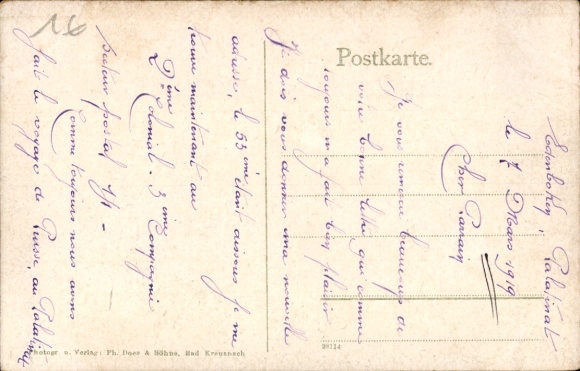 16
Postkarte.
Edenkoben, Palatinat
le 7 Mars 1919
Cher Parrain
Je vous remercie beaucoup de
votre bonne lettre qui comme
toujours m'a fait bien plaisir
Je dois vous donner ma nouvelle
adresse, le 53ème étant dissous je me
trouve maintenant au
2ème Colonial. 3ème Compagnie
Secteur postal
Comme toujours nous avons
fait le voyage de Suisse au Palatinat
Photogr u. Verlag: Ph. Doos & Söhne, Bad Kreuznach